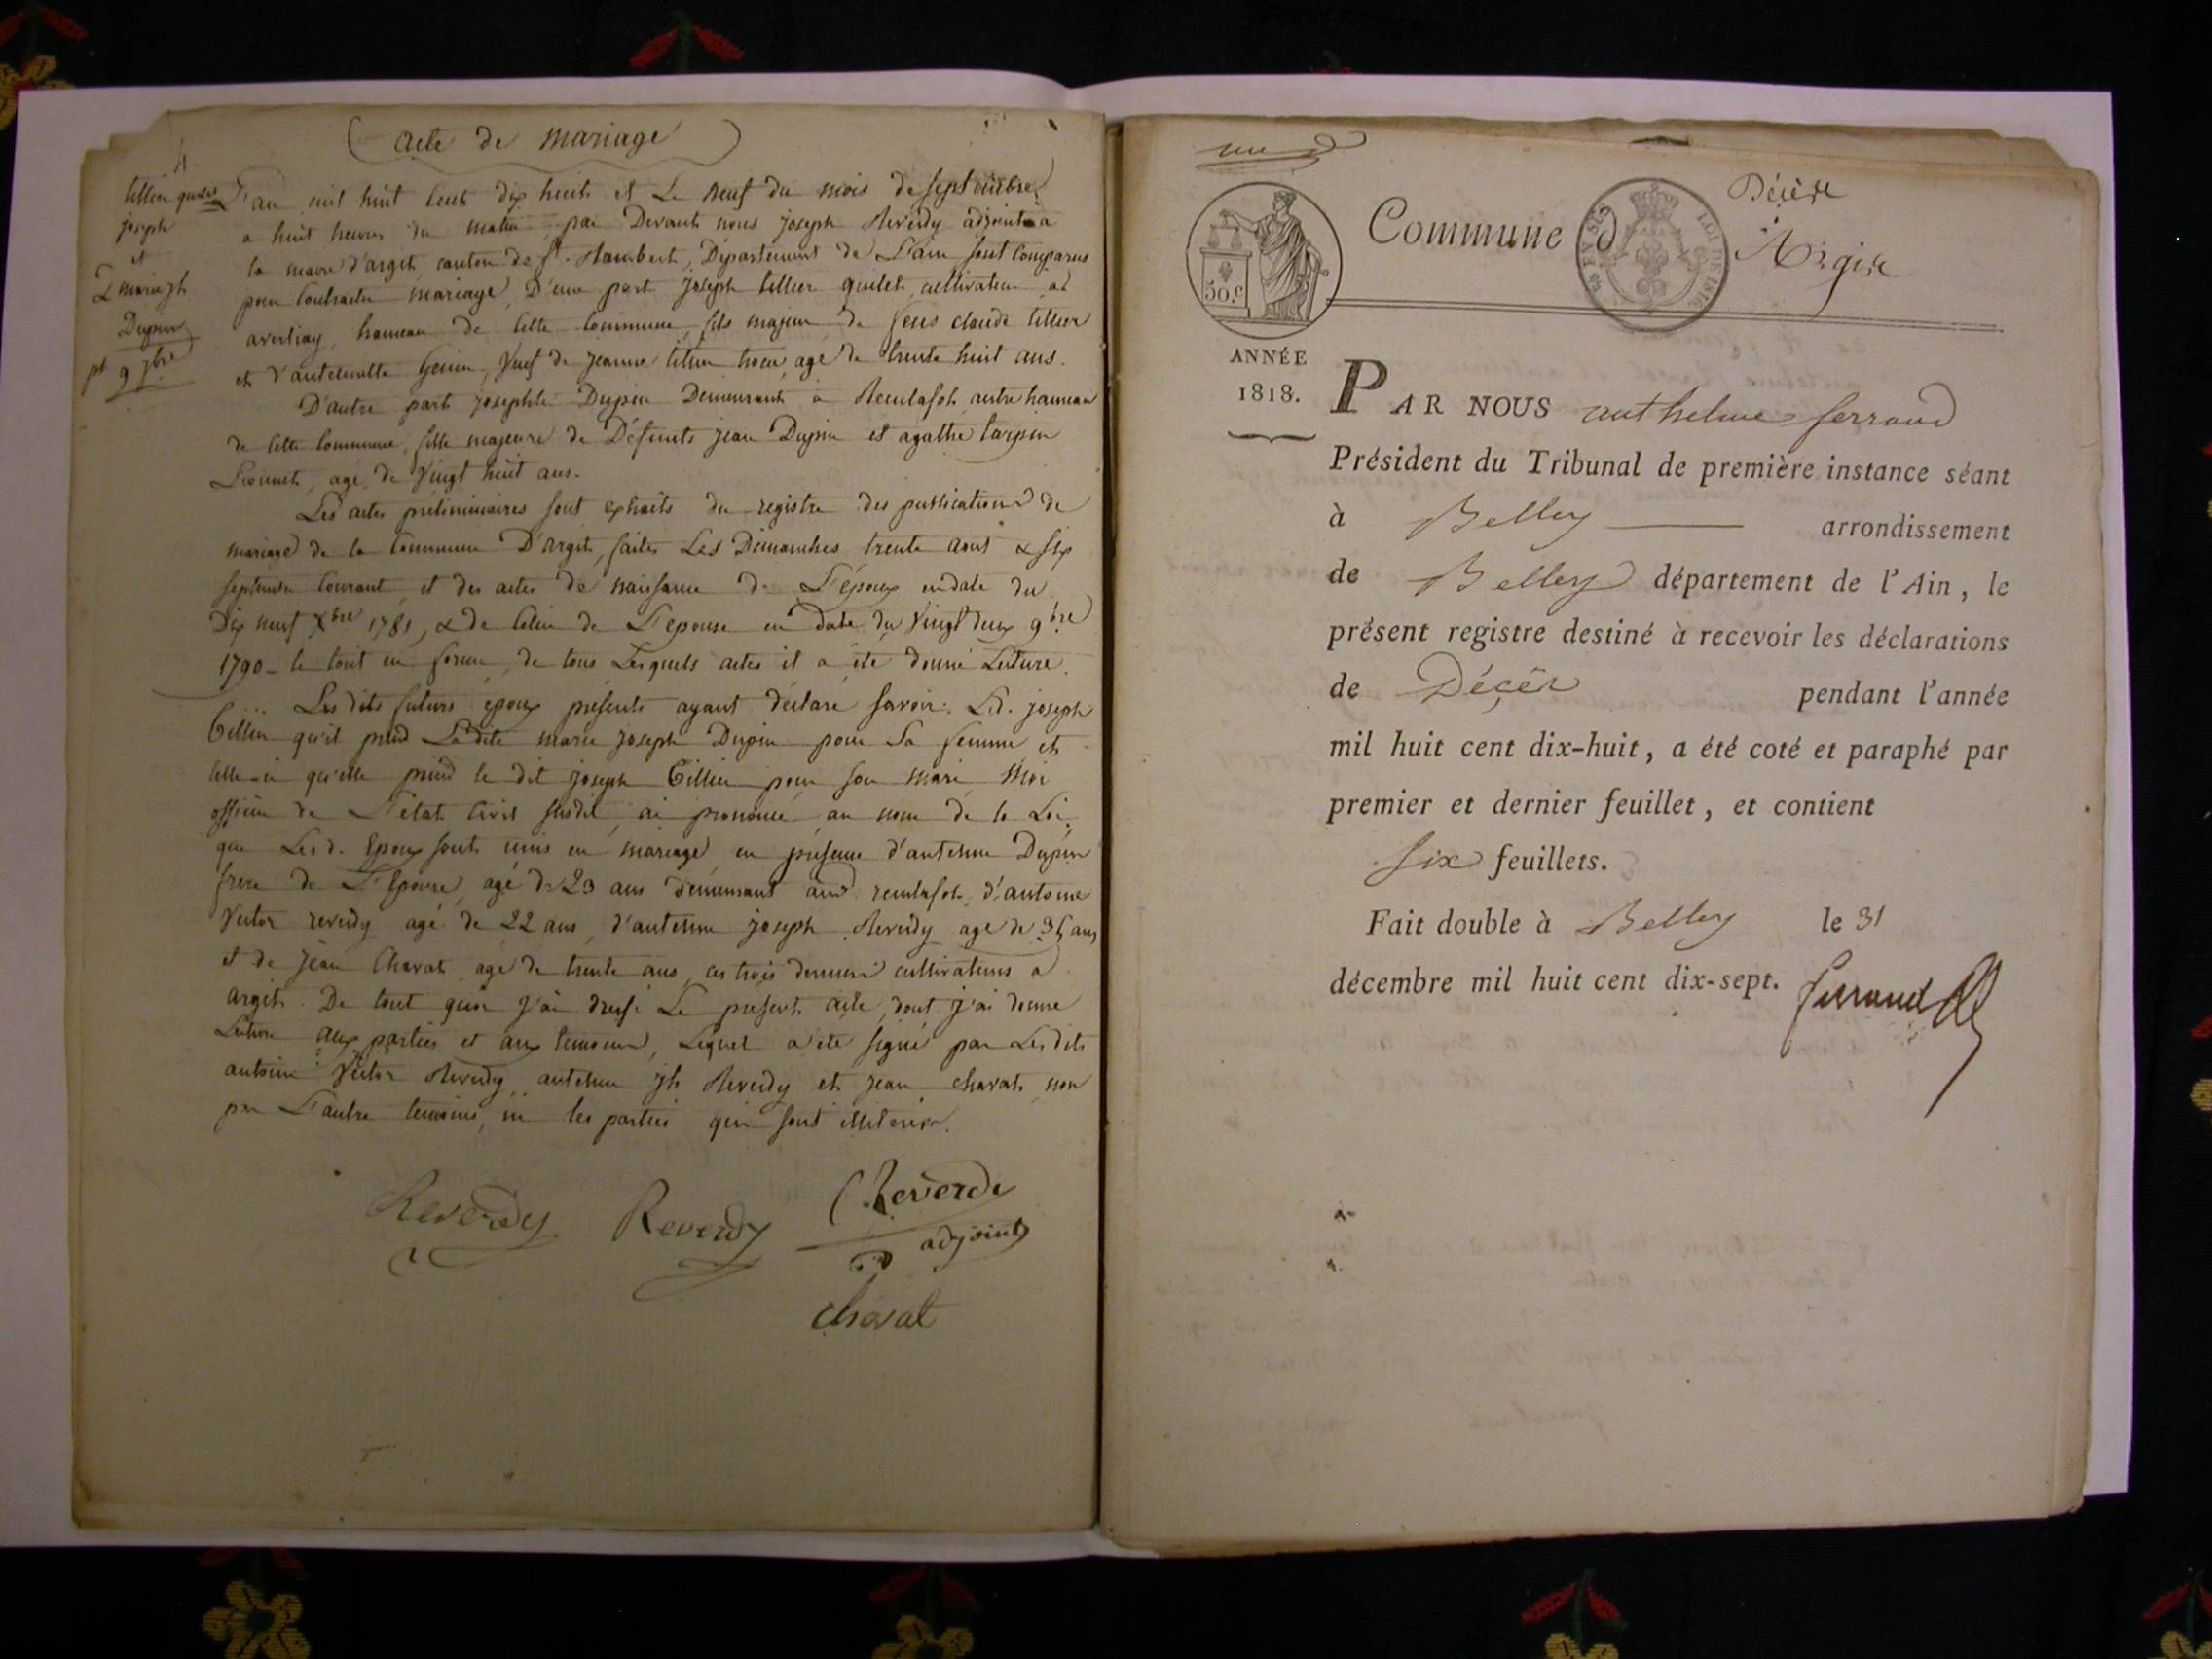 acte de mariage
4
tillier quilet
joseph
et
marie jh
Dupin
9 7bre
L'an mil huit Cent dix huit et Le neuf du mois de septembre
a huit heures du matin, par Devant nous joseph Reverdy adjoint a
la mairie d'argit, canton de St. Rambert, Département de L'ain sont Comparus
pour Contracter mariage, D'une part joseph tillier quilet, cultivateur a
averliay, hameau de Cette Commune, fils majeur de feus claude tillier
et d'antelmette Genin, Veuf de jeanne tillier, agé de trente huit ans.
D'autre part josephte Dupin Demeurant à Reculafol, autre hameau
de Cette Commune, fille majeure de Défunts jean Dupin et agathe tarpin
agé de Vingt huit ans.
Les actes préliminaires sont extraits du registre des publications de
mariage de la Commune D'argit, faites Les Dimanches trente aout & six
septembre Courant, et des actes de naissance de L'époux en date du
Dix neuf Xbre 1781, & de Celui de L'epouse en date du Vingt deux 9bre
1790 - le tout en forme, de tous Lesquels actes il a été donné Lecture.
Les dits futurs époux présents ayant déclaré savoir: Led. joseph
Tillier qu'il prend Ladite marie joseph Dupin pour Sa femme et
Celle-ci qu'elle prend le dit joseph Tillier pour son mari, Moi
officier de L'état Civil susdit, ai prononcé, au nom de la Loi,
que Lesd. Epoux sont unis en mariage, en présence d'antelme Dupin
frere de L'Epouse, agé de 23 ans demeurant aud. reculafol, d'antoine
Victor reverdy agé de 22 ans, d'antelme joseph Reverdy agé de 35 ans
et de jean Charat, agé de trente ans, ces trois derniers cultivateurs a
argit. De tout quoi j'ai dressé Le present acte, dont j'ai donné
Lecture aux parties et aux temoins, Lequel a été signé par Lesdits
antoine Victor Reverdy, antelme jh Reverdy et jean charat, non
par L'autre temoins, ni les parties qui sont illitérés.
Reverdy Reverdy Reverdi
adjoint
Charat
Commune d Argis
Décès
50.c
LOI DE 1816
ANNÉE
1818.
PAR NOUS anthelme ferrand
Président du Tribunal de première instance séant
à Belley arrondissement
de Belley département de l'Ain, le
présent registre destiné à recevoir les déclarations
de Décès pendant l'année
mil huit cent dix-huit, a été coté et paraphé par
premier et dernier feuillet, et contient
six feuillets.
Fait double à Belley le 31
décembre mil huit cent dix-sept.
ferrand